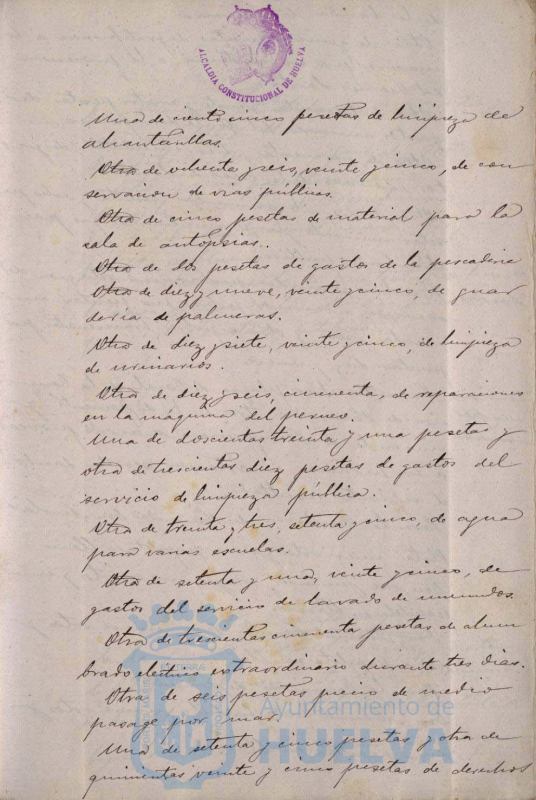 ALCALDIA CONSTITUCIONAL DE HUELVA
Una de ciento cinco pesetas de limpieza de
alcantarillas.
Otra de ochenta y seis, veinte y cinco, de con
servacion de vias públicas.
Otra de cinco pesetas de material para la
sala de autopsias.
Otra de dos pesetas de gastos de la pescaderia
Otra de diez y nueve, veinte y cinco, de guar
deria de palmeras.
Otra de diez y siete, veinte y cinco, de limpieza
de urinarios.
Otra de diez y seis, cincuenta, de reparaciones
en la máquina del
Una de doscientas treinta y una pesetas y
otra de trescientas diez pesetas de gastos del
servicio de limpieza pública.
Otra de treinta y tres, setenta y cinco, de agua
para varias escuelas.
Otra de setenta y una, veinte y cinco, de
gastos del servicio de lavado de inmundos.
Otra de trescientas cincuenta pesetas de alum
brado electrico extraordinario durante tres dias.
Otra de seis pesetas precio de medio
pasage por mar.
Una de setenta y cinco pesetas y otra de
quinientas veinte y cinco pesetas de derechos
Ayuntamiento de
HUELVA